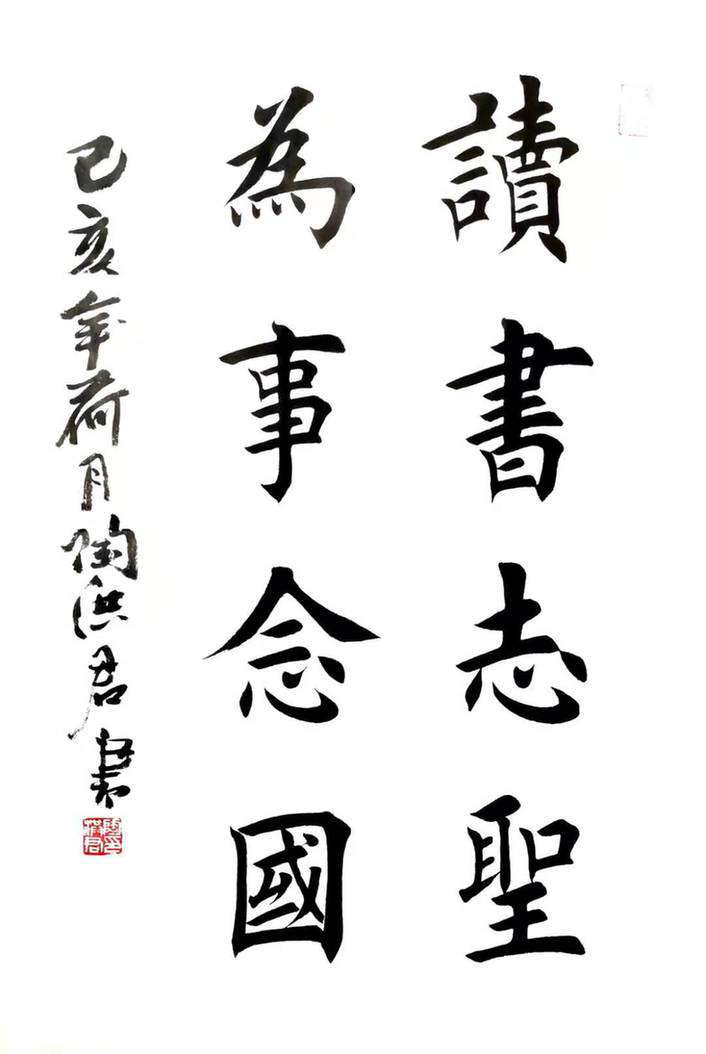 讀書志聖
為事念國
己亥年荷月陶洪君書